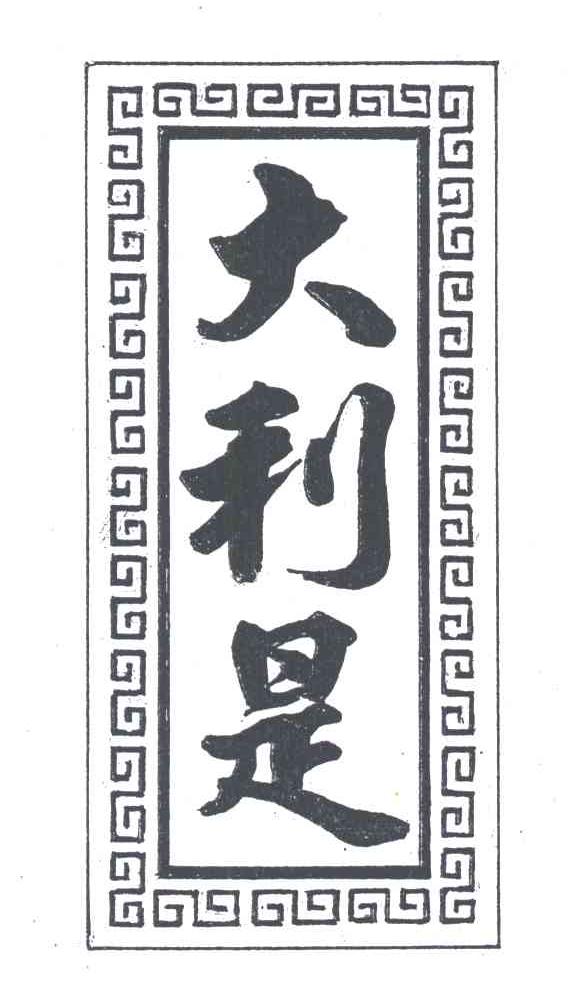 大利是